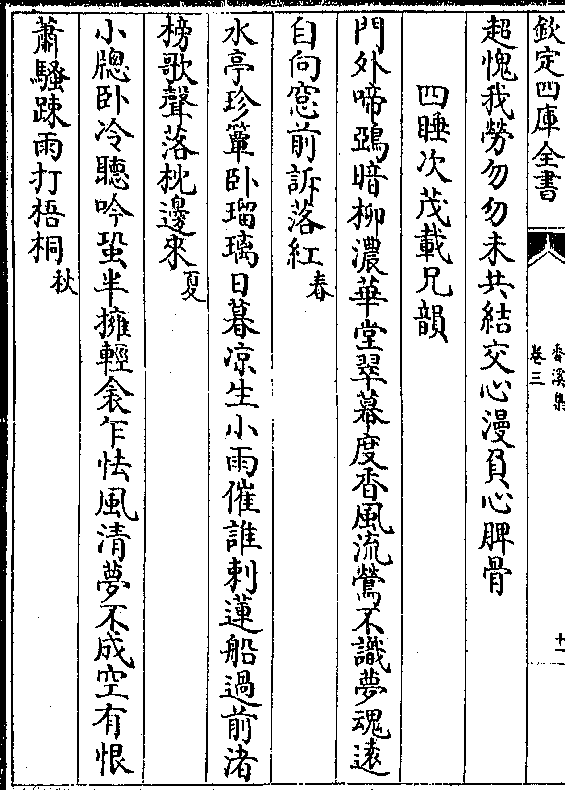 欽定四庫全書
香溪集
卷三
十一
超愧我勞勿勿未共結交心漫負心脾骨
四睡次茂載兄韻
門外啼鵶暗柳濃華堂翠幕度香風流鶯不識夢魂逺
自向窓前訴落紅春
水亭珍簟卧瑠璃日暮凉生小雨催誰刺蓮船過前渚
榜歌聲落枕邊來夏
小牕卧冷聽吟蛩半擁輕衾乍怯風清夢不成空有恨
蕭騷踈雨打梧桐秋